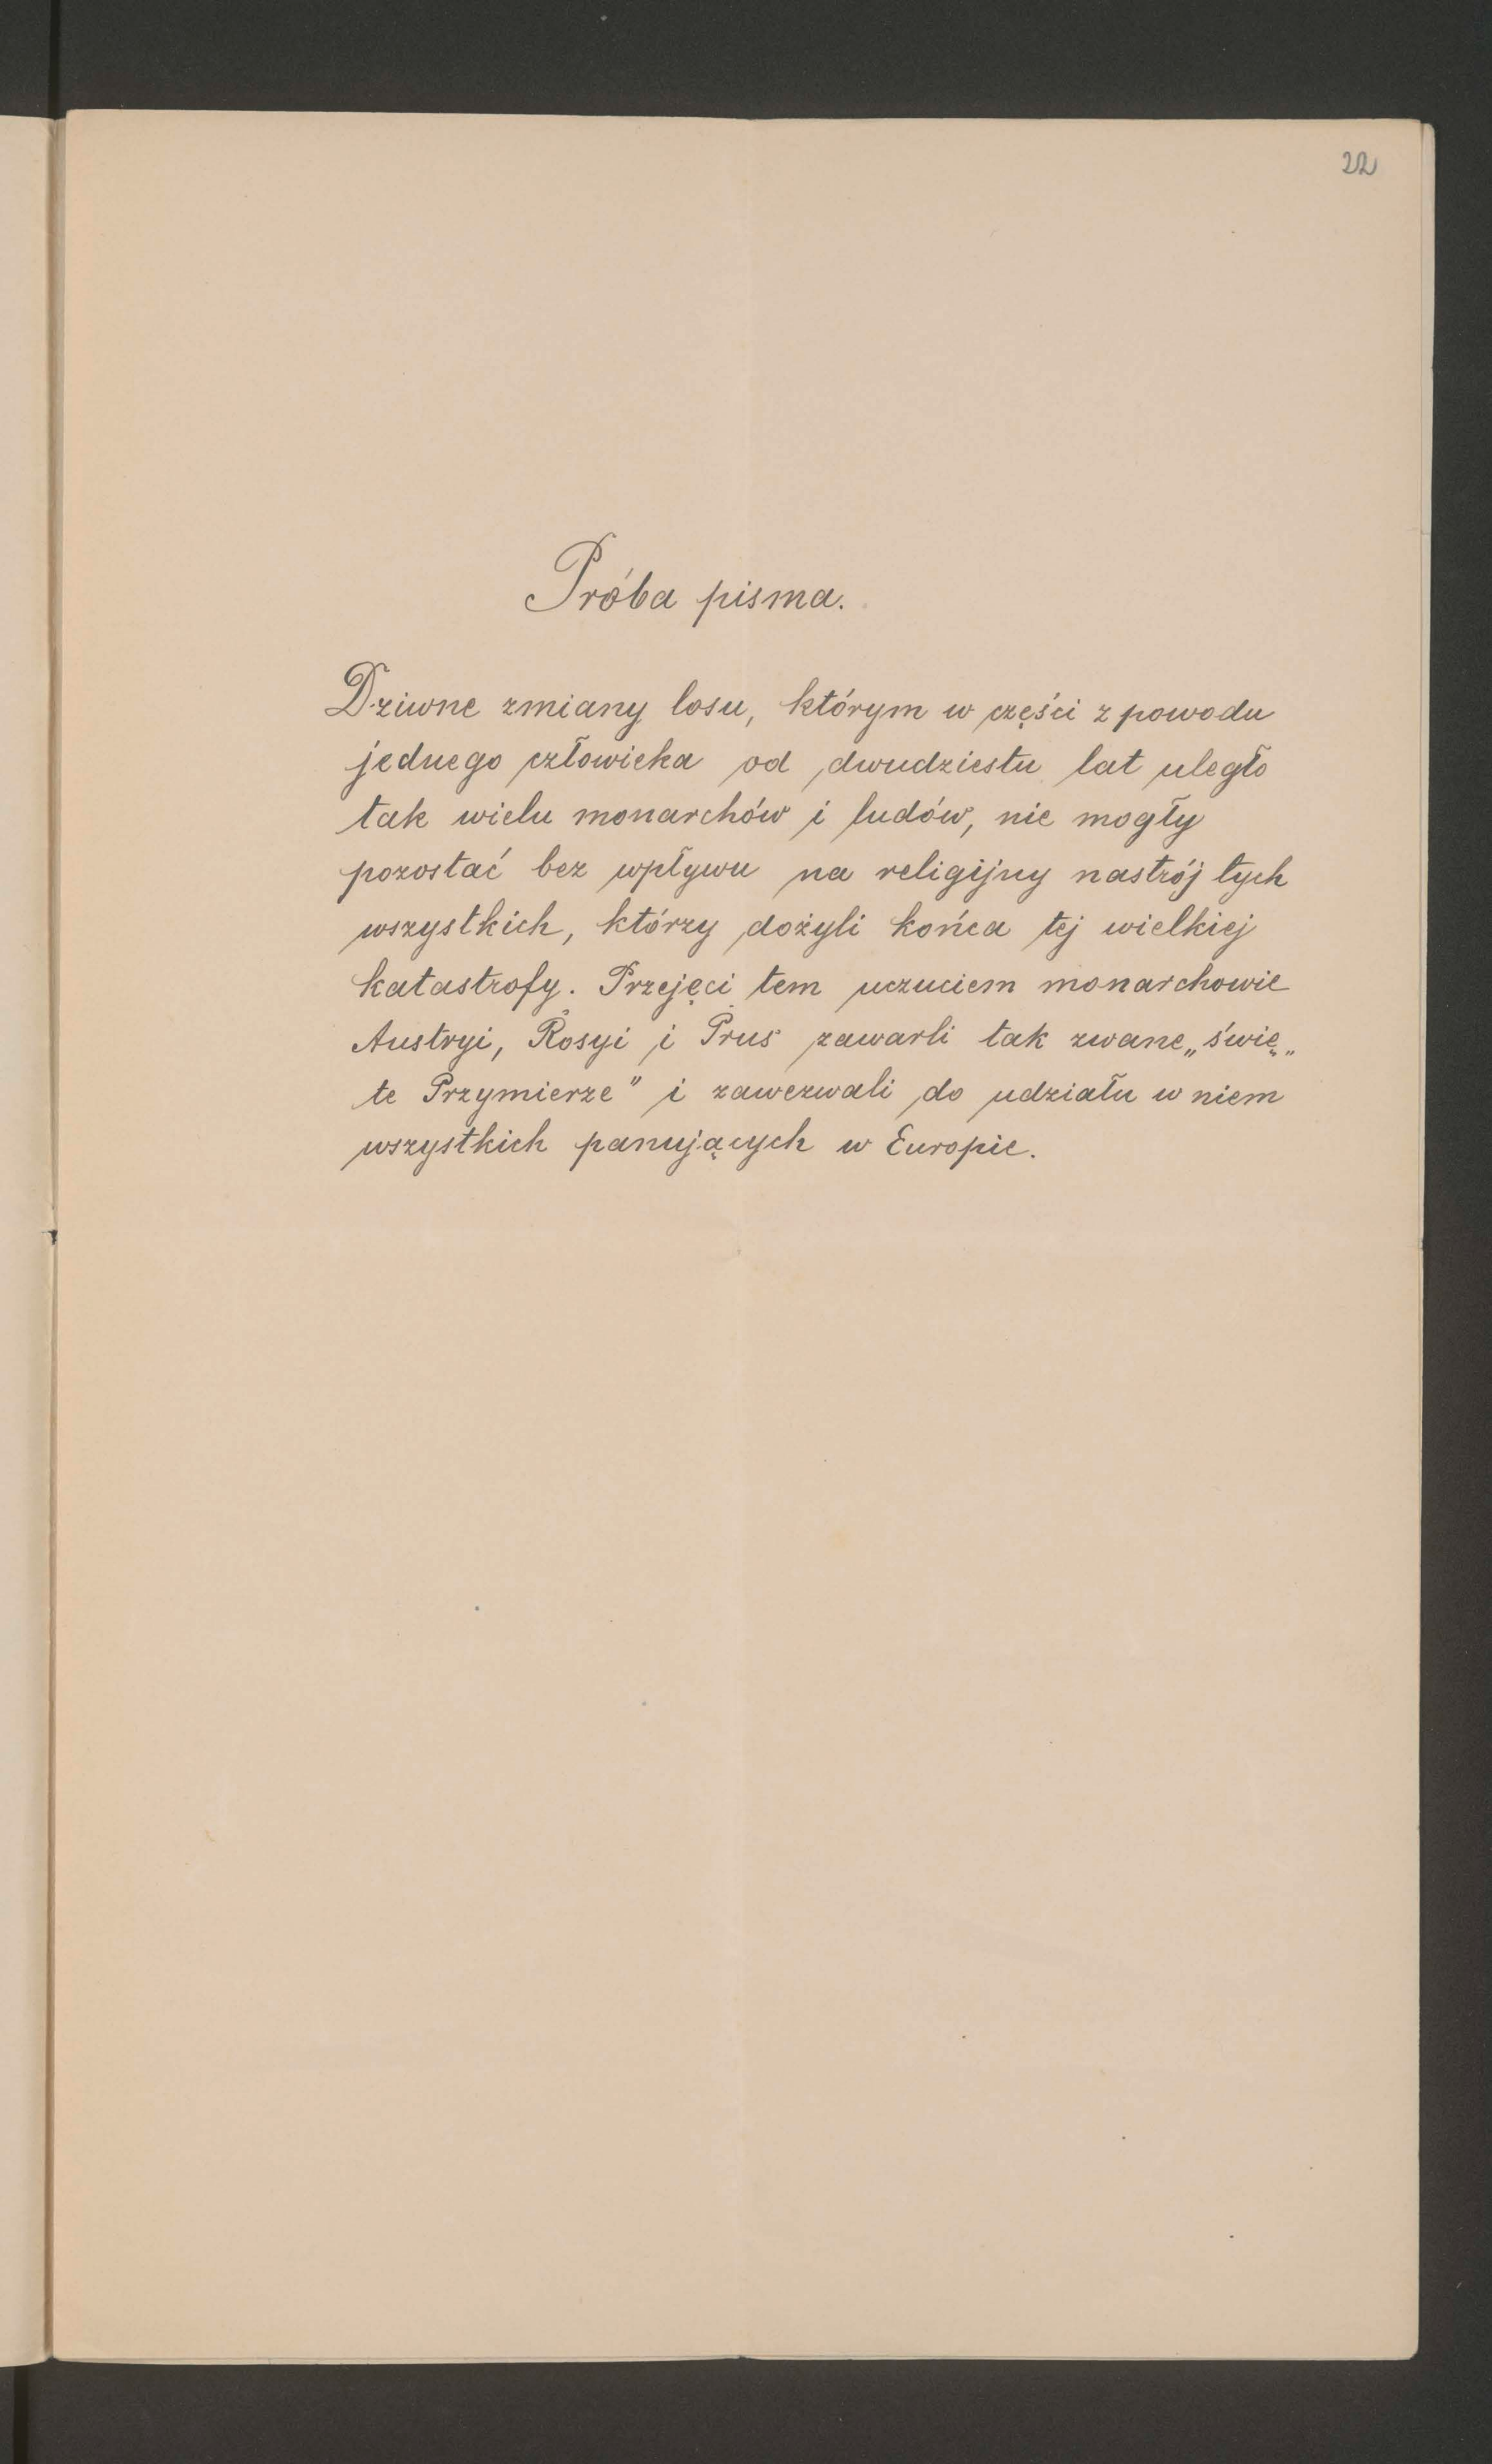 22
Próba pisma.
Dziwne zmiany losu, którym w części z powodu
jednego człowieka od dwudziestu lat uległo
tak wielu monarchów i ludów, nie mogły
pozostać bez wpływu na religijny nastrój tych
wszystkich, którzy dożyli końca tej wielkiej
katastrofy. Przejęci tem uczuciem monarchowie
Austryi, Rosyi i Prus zawarli tak zwane „świę„
te Przymierze" i zawezwali do udziału w niem
wszystkich panujących w Europie.